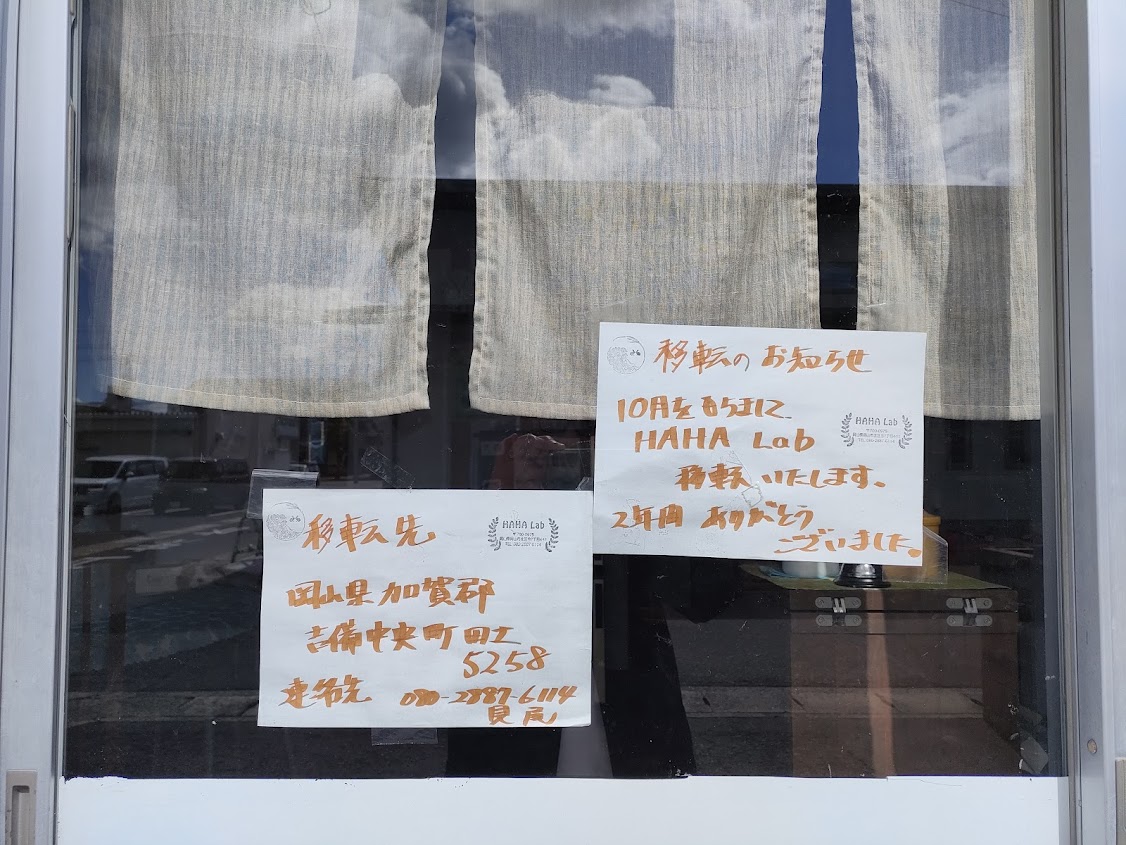 移転のお知らせ
10月をもちまして
HAHA Lab
移転いたします。
2年間 ありがとう
ございました。
HAHA Lab
移転先
HAHA Lab
岡山県加賀郡
吉備中央町田土
5258
連絡先 080-2887-6114
貝尻